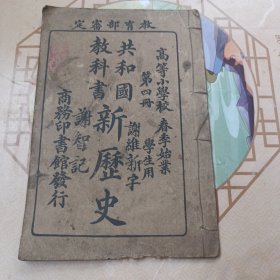 教育部審定
高等小學校 春季始業
第四冊 學生用
共和國
教科書
新歷史
謝維新字
謝智記
商務印書館發行